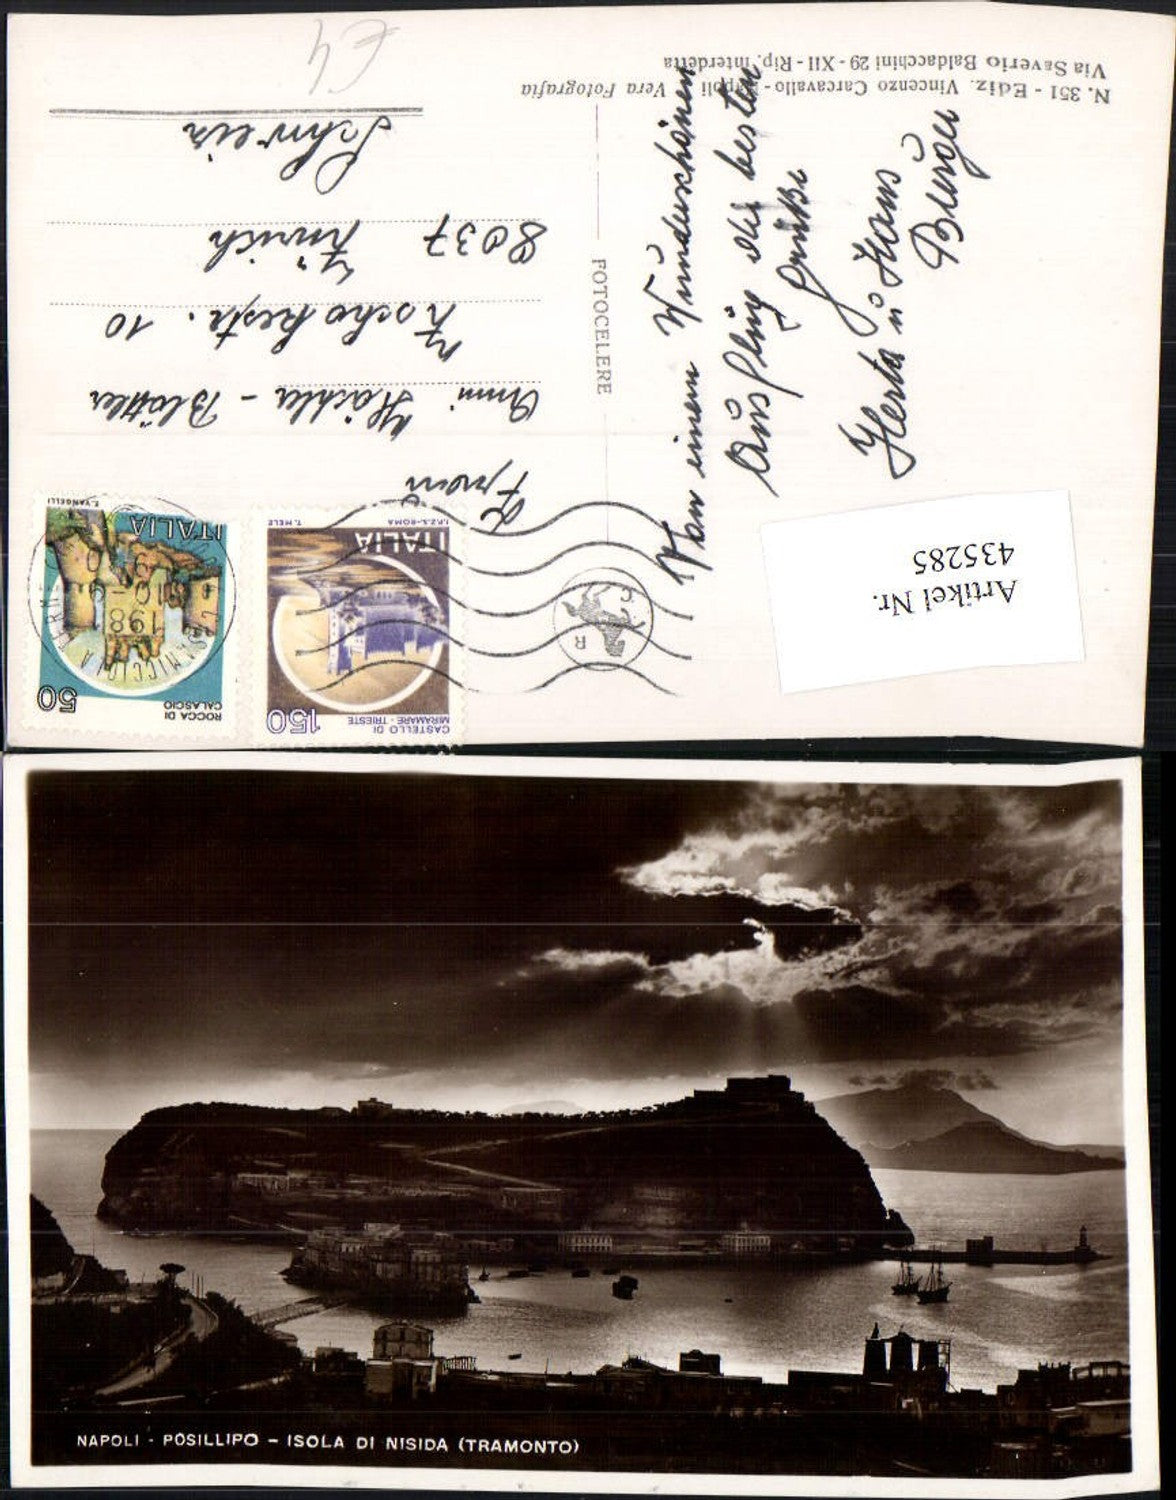 N. 351 - Ediz. Vincenzo Carcavallo - Napoli   Vera Fotografia
Via Saverio Baldacchini 29 - XII - Rip. Interdetta
FOTOCELERE
Von einem Wunderschönen
Ausflug die besten
Grüße
Herta u Hans
Burger
Anni Hächler - Blättler
10
8037 Zürich
Schweiz
€4
CASTELLO DI
MIRAMARE - TRIESTE
150
ITALIA
I.P.Z.S.-ROMA
T. MELE
ROCCA DI
CALASCIO
50
ITALIA
E. VANGELLI
R
Artikel Nr.
435285
NAPOLI - POSILLIPO - ISOLA DI NISIDA (TRAMONTO)